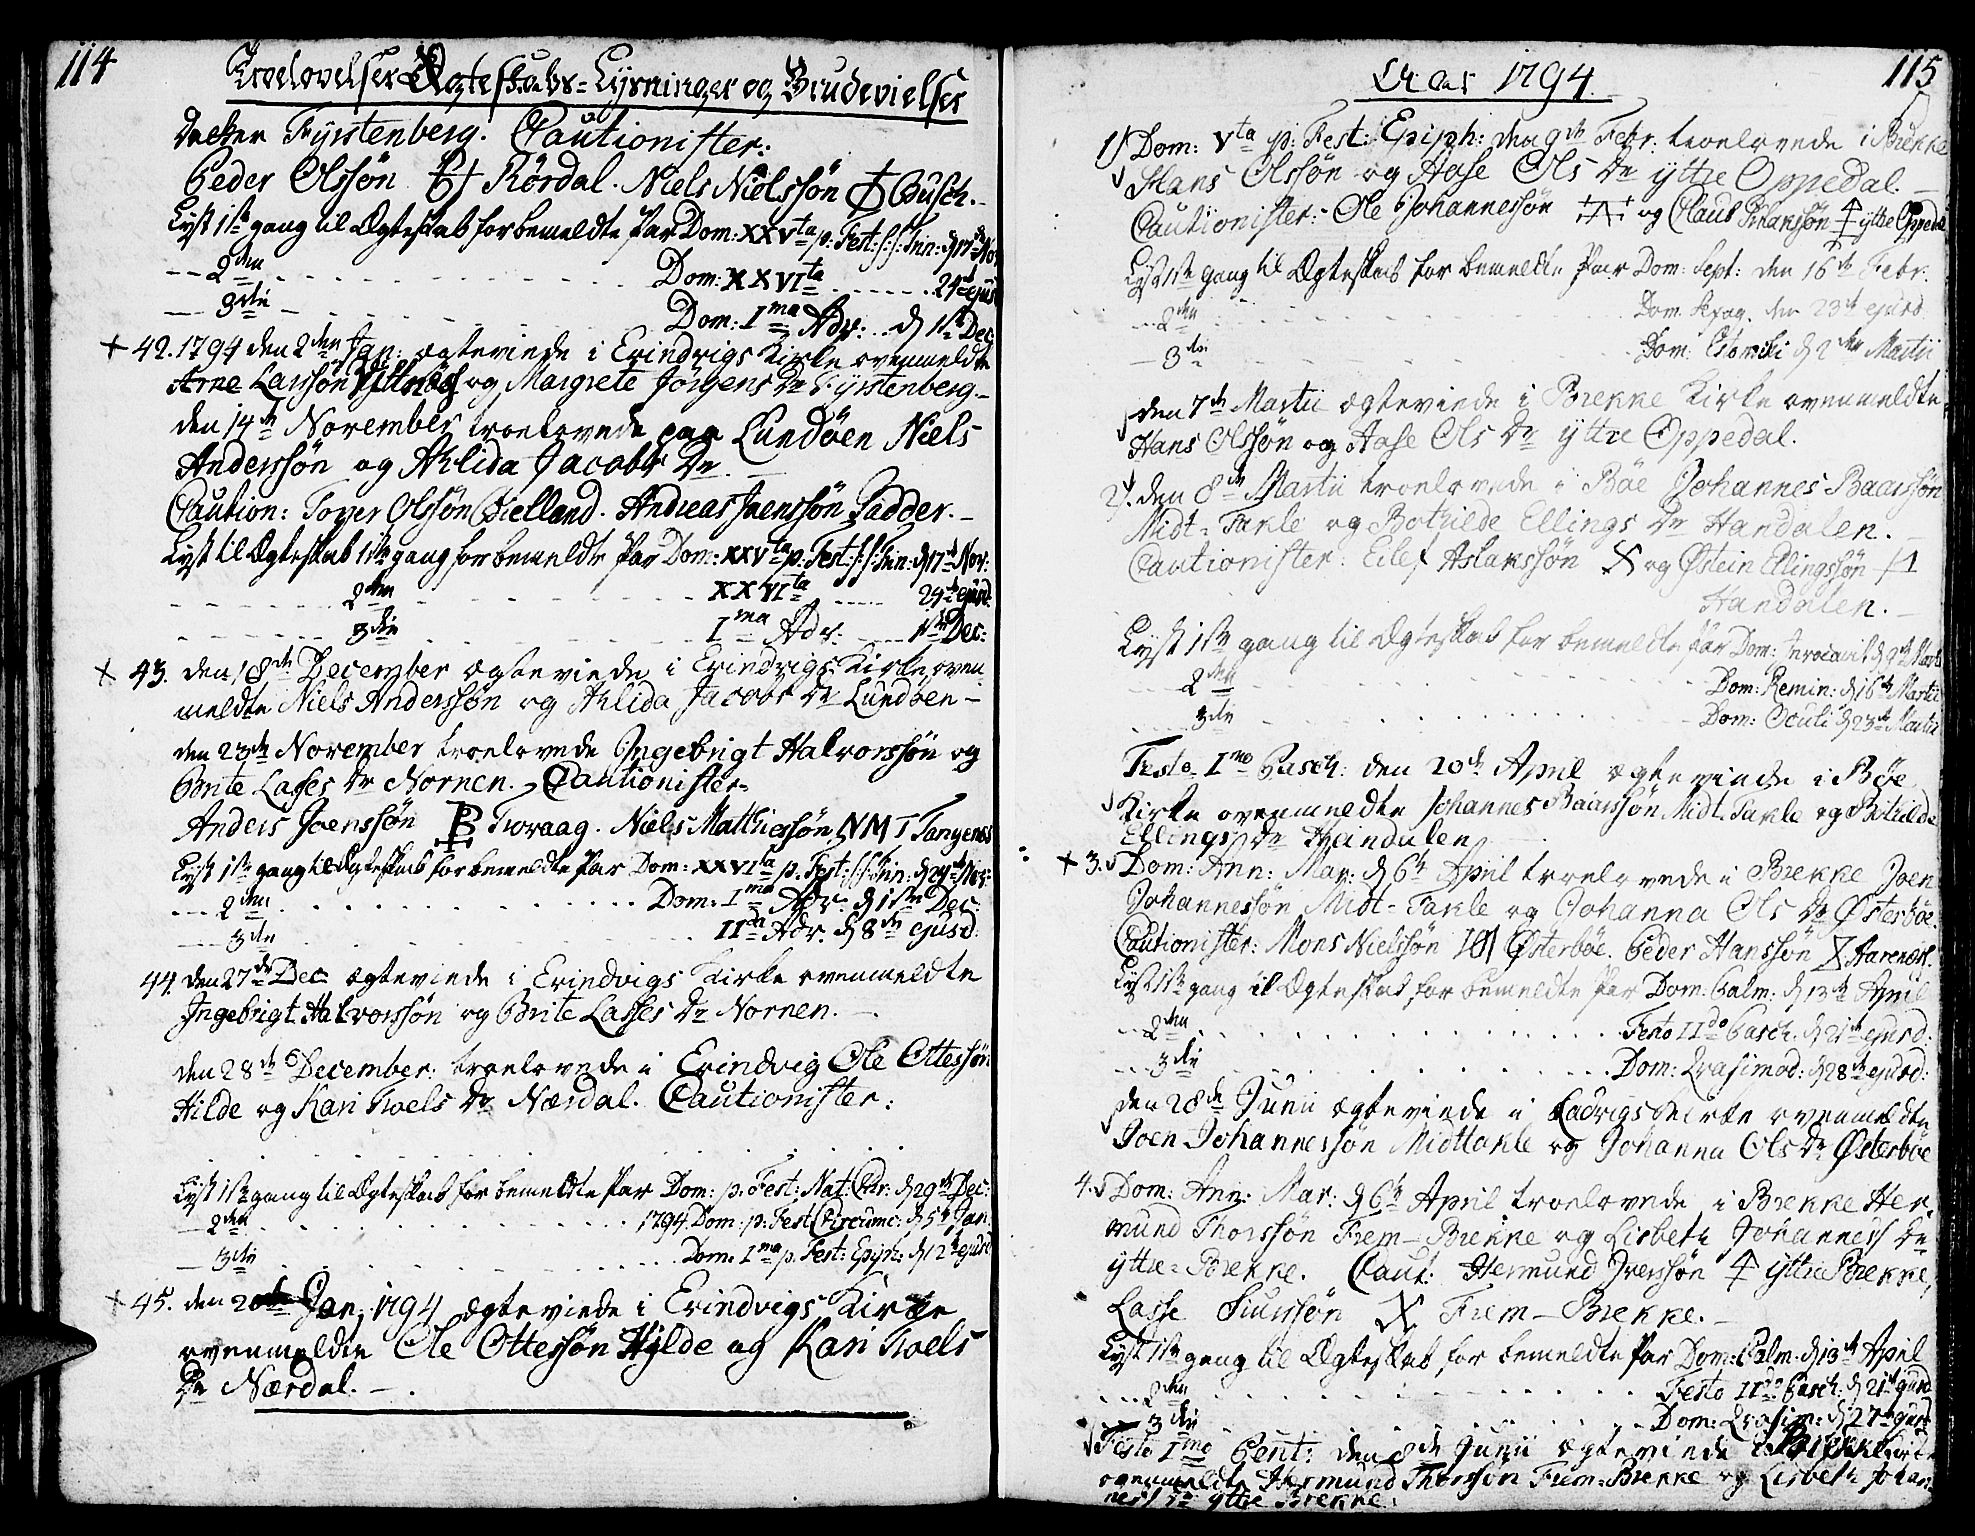 114
Troelovelser Ægteskabs=Lysninger og Brudevielser
Fyrstenberg. Cautionister:
Peder Olssön Rördal. Niels Nielssön Busch.
Lyst 1ste gang til Ægteskab for bemeldte Par Dom: XXVta p: Fest: S: S: Trin: d 17de Nov
--- 2den - - - - Dom: XXVIta - - - - - 24de ejus
--- 3die - - - - Dom: Ima Adv: .. d 1ste Dec
+ 42. 1794 den 2den Jan: ægteviede i Evindvigs Kirke ovenmeldte
Arne Larssön og Margrete Jörgens Dr Fyrstenberg.-
den 14de November troelovede paa Lundöen Niels
Anderssön og Ahlida Jacobs Dr
Caution: Tover Olssön Gielland. Andreas Joenssön Sadder.-
Lyst til Ægteskab 1ste gang for bemeldte Par Dom: XXVta p: Fest: S: S: Trin: d 17de Nov:
- - - 2den - - - - XXVIta - - - 24de ejusd:
- - - 3die - - - - Ima Adv: - - - 1ste Dec:
+ 43. den 18de December ægteviede i Evindvigs Kirke oven
meldte Niels Anderssön og Ahlida Jacobs Dr Lundöen -
den 23de November troelovede Ingebrigt Halvorssön og
Brite Lasses Dr Nornen. Cautionister:
Anders Joenssön Tvoraag. Niels Matthiessön NMT Tangenes
Lyst 1ste gang til Ægteskab for bemeldte Par Dom: XXVIta p: Fest: S: S: Trin: d 24de Nov:
--- 2den - - - - Dom: Ima Adv: d 1ste Dec:
--- 3die - - - - IIda Adv. d 8de ejusd:
44. den 27de Dec ægteviede i Evindvigs Kirke ovenmeldte
Ingebrigt Halvorssön og Brite Lasses Dr Nornen. -
den 28de December: troelovede i Evindvig Ole Ottessön
Hilde og Kari Roels Dr Nærdal. Cautionister:
Lyst 1ste gang til Ægteskab for bemeldte Par Dom: p: Fest: Nat: Chr: d 29de Dec:
- 2den - - - - 1794 Dom: p: Fest Circumc: d 5te Jan.
- 3die - - - - Dom: Ima p: Fest: Epiph: d 12te ejusd
+ 45. den Jan: 1794 ægteviede i Evindvigs Kirke
ovenmeldte Ole Ottessön Hylde og Kari Roels
Dr Nærdal. - .
Aar 1794.
115
1) Dom: Vta p: Fest: Epiph: den 9de Febr: troelovede i Brekke
Hans Olssön og Aase Ols Dr yttre Oppedal. -
Cautionister:- Ole Johannessön og Claus Johanssön yttre Oppedal
Lyst 1ste gang til Ægteskab for bemeldte Par Dom: Sept: den 16de Febr:
--- 2den - - - - Dom Sexag. den 23de ejusd
- 3die - - - - Dom: Estomihi d 2den Martii
den 7de Martii ægteviede i Brekke Kirke ovenmeldte
Hans Olssön og Aase Ols Dr yttre Oppedal.
2). den 8de Martii troelovede i Böe Johannes Baarssön
Midt=Takle og Bothilde Ellings Dr Handalen. -
Cautionister: Eilef Aslakssön og Østein Ellingssön
Handalen. -
Lyst 1ste gang til Ægteskab for bemeldte Par Dom: Invocavit d 9de Martii
--- 2den - - - - Dom: Remin: d 16de Martii
--- 3die - - - - Dom: Oculi d 23de Martii
Festo Imo Pasch: den 20de April ægteviede i Böe
Kirke ovenmeldte Johannes Baarssön Midt Takle og Botilde
Ellings Dr Handalen
+ 3. Dom: Ann: Mar: d 6te April troelovede i Brekke Joen
Johannessön Midt=Takle og Johanna Ols Dr Østerböe.
Cautionister: Mons Nielssön Østerböe. Peder Hanssön
Lyst 1ste gang til Ægteskab for bemeldte Par Dom: Palm: d 13de April
--- 2den - - - - Festo IIdo Pasch. d 21de ejusd:
--- 3die - - - - Dom: Qvasimod: d 28de ejusd:
den 28de Junii ægteviede i Ladvigs Kirke ovenmeldte
Joen Johannessön Midttakle og Johanna Ols Dr Østerböe
4. Dom: Ann: Mar: d 6te April troelovede i Brekke Her,
mund Thorssön Frem-Brekke og Lisbeth Johanness Dr
yttre=Brekke. Caut: Hermund Iverssön yttre Brekke,
Lasse Siurssön Frem-Brekke. -
Lyst 1ste gang til Ægteskab for bemeldte Par Dom: Palm. d 13de April
--- 2den - - - - Festo IIdo Pasch: d 21de ejusd
--- 3die - - - - Dom: Qvasim: d 27de ejusd
Festo Imo Pent: den 8de Junii ægteviede i Brekke
ovenmeldte Hermund Thorssön Frem=Brekke og Lisbeth Johan-
ness Dr yttre Brekke.